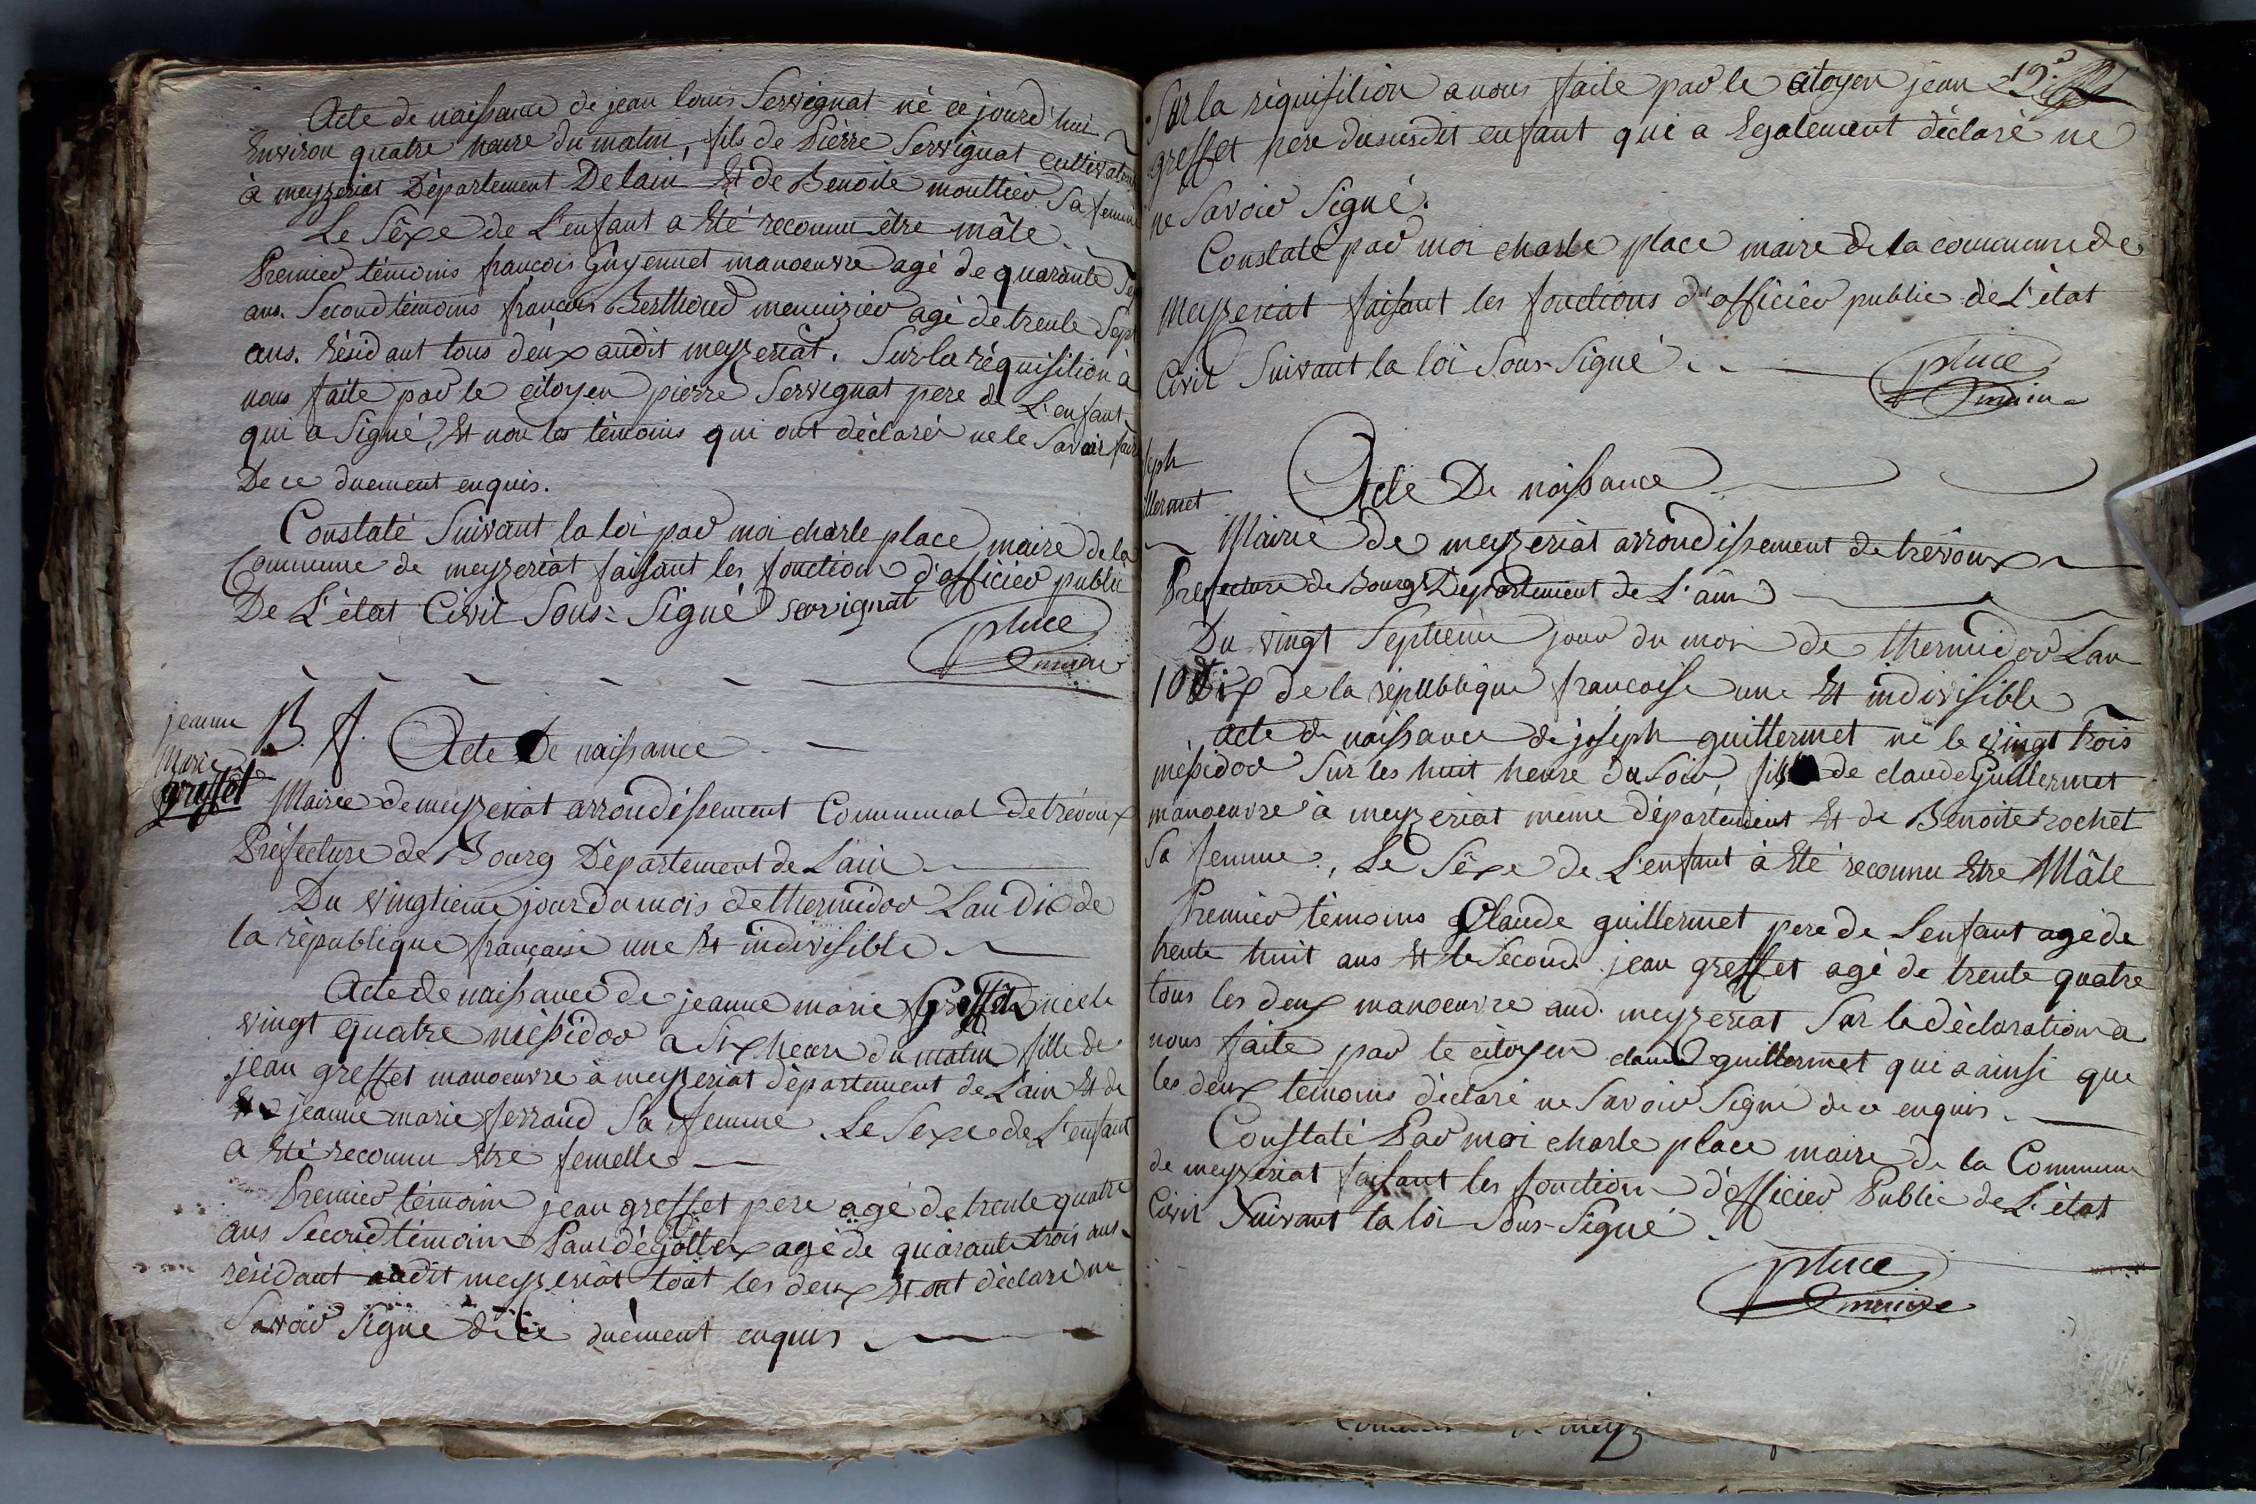 Acte de naissance de jean louis Servignat né ce jourd'hui
Environ quatre heure du matin, fils de Pierre Servignat cultivateur
à meyzeriat Département Delain Et de Benoite mouttier Sa femme
Le Sêxe de L'enfant a Eté reconnu être mâle.
Premier témoins francois Guyennet manoeuvre agé de quarante
ans. Second témoins francois Berthoud menuizier agé de trente Sept
ans. Résidant tous deux audit meyzeriat. Sur la réquisition à
nous faite par le citoyen pierre Servignat pere de L'enfant
qui a Signé, Et non les témoins qui ont déclarés ne le Savoir faire
De ce duement enquis.
Constaté Suivant la loi par moi charle place maire de la
Commune de meyzeriat faisant les fonction d'officier public
De L'état Civil Sous-Signé servignat
place
maire
jeanne
Marie
greffet
B. f. Acte De naissance
Mairie de meyzeriat arrondissement Communal de trévoux
Préfecture de Bourg Département de Lain
Du vingtieme jour du mois de thermidor Lan Dix de
la république française une Et indivisible
Acte de naissance de jeanne marie Greffet née le
vingt quatre méssidor a Six heure du matin fille de
jean greffet manoeuvre à meyzeriat département de Lain Et de
jeanne marie ferraud Sa femme Le Sexe de L'enfant
a Eté reconnu Etre femelle
Premier témoin jean greffet pere agé de trente quatre
ans Second témoin Paul dégottex agé de quarante trois ans
résidant audit meyzeriat tout les deux Et ont déclaré ne
Savoir Signé de ce duement enquis
19.e
Sur la réquisition a nous faite par le citoyen jean
greffet pere dususdit enfant qui a Egalement déclaré ne
ne Savoir Signé.
Constaté par moi charle place maire de la commune de
Meyzeriat faisant les fonctions d'officier public de L'état
Civil Suivant la loi Sous-Signé
place
maire
seph
illermet
Acte De naissance
Mairie de meyzeriat arrondissement de trévoux
Prefecture de Bourg Département de L'ain
Du vingt Septieme jour du mois de thermidor Lan
10 Dix de la république francaise une Et indivisible
Acte de naissance de joseph guillermet né le vingt trois
méssidor Sur les huit heure du Soir, fils de claude Guillermet
manoeuvre à meyzeriat même département Et de Benoite rochet
Sa femme, Le Sêxe de L'enfant à Eté reconnu Etre Mâle
Premier témoins Claude guillermet pere de Lenfant agé de
trente huit ans Et le Second jean greffet agé de trente quatre
tous les deux manoeuvre aud. meyzeriat Sur la déclaration a
nous faite par le citoyen claude guillermet qui a ainsi que
les deux témoins déclaré ne Savoir Signé de ce enquis.
Constaté Par moi charle place maire de la Commune
de meyzeriat faisant les fonction d'officier Public de L'état
Civil Suivant la loi Sous-Signé.
place
maire